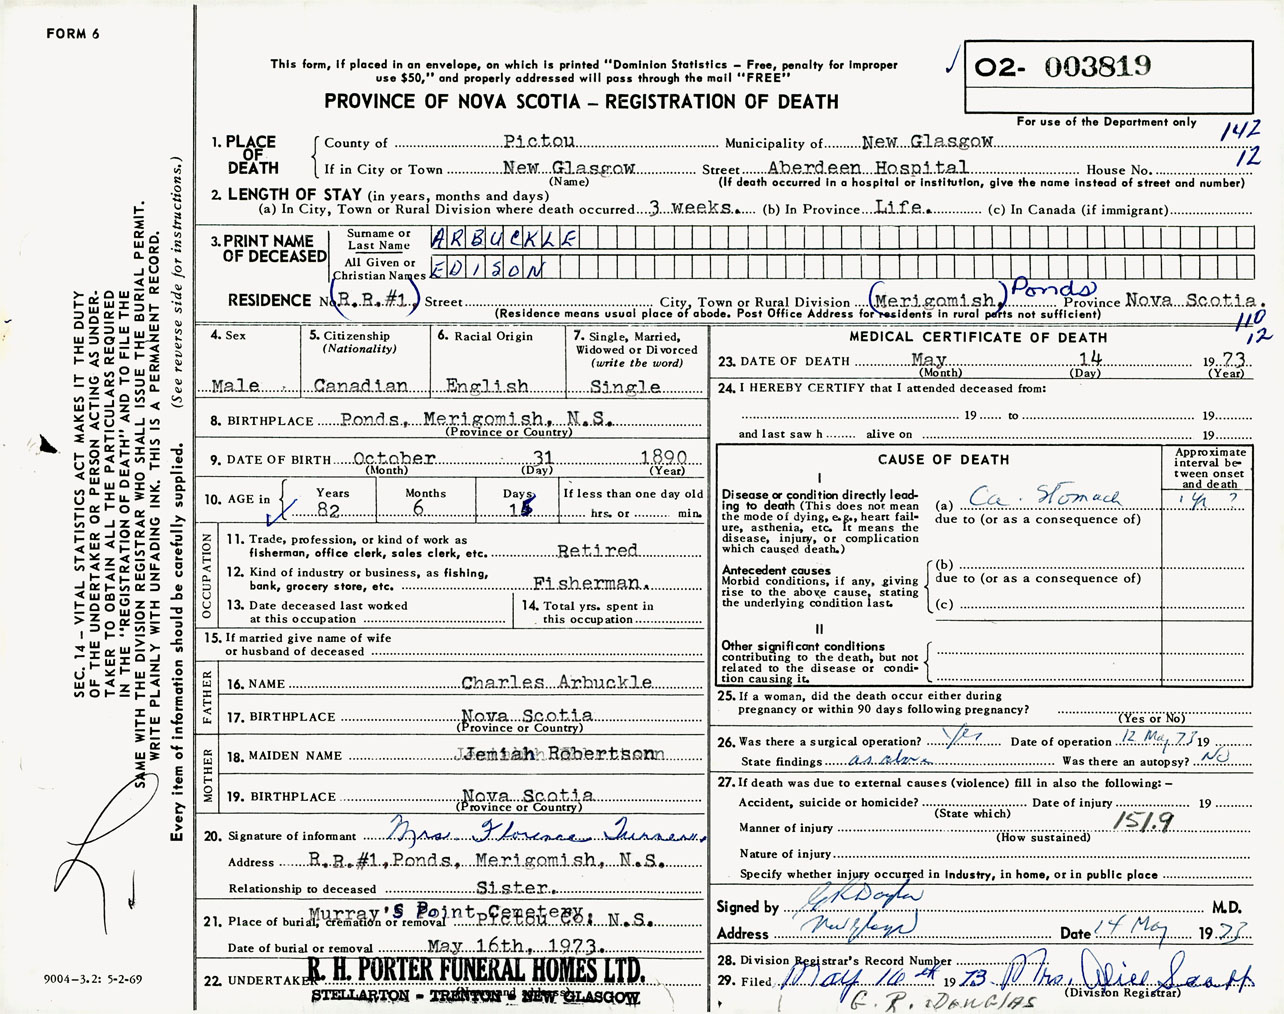 FORM 6
This form, if placed in an envelope, on which is printed "Dominion Statistics – Free, penalty for improper
use $50," and properly addressed will pass through the mail "FREE"
PROVINCE OF NOVA SCOTIA – REGISTRATION OF DEATH
02- 003819
For use of the Department only
142
12
1. PLACE OF DEATH
County of Pictou Municipality of New Glasgow
If in City or Town New Glasgow Street Aberdeen Hospital House No.
(Name) (If death occurred in a hospital or institution, give the name instead of street and number)
2. LENGTH OF STAY (in years, months and days)
(a) In City, Town or Rural Division where death occurred 3 weeks. (b) In Province Life. (c) In Canada (if immigrant)
3. PRINT NAME OF DECEASED
Surname or Last Name ARBUCKLE
All Given or Christian Names EDISON
RESIDENCE No. (R.R.#1) Street City, Town or Rural Division (Merigomish) Ponds Province Nova Scotia.
(Residence means usual place of abode. Post Office Address for residents in rural parts not sufficient)
110
12
4. Sex Male
5. Citizenship (Nationality) Canadian
6. Racial Origin English
7. Single, Married, Widowed or Divorced (write the word) Single
8. BIRTHPLACE Ponds, Merigomish, N.S.
(Province or Country)
9. DATE OF BIRTH October 31 1890
(Month) (Day) (Year)
10. AGE in Years 82 Months 6 Days If less than one day old hrs. or min.
OCCUPATION
11. Trade, profession, or kind of work as
fisherman, office clerk, sales clerk, etc. Retired
12. Kind of industry or business, as fishing,
bank, grocery store, etc. Fisherman.
13. Date deceased last worked
at this occupation
14. Total yrs. spent in
this occupation
15. If married give name of wife
or husband of deceased
FATHER
16. NAME Charles Arbuckle
17. BIRTHPLACE Nova Scotia
(Province or Country)
MOTHER
18. MAIDEN NAME Jemiah Robertson
19. BIRTHPLACE Nova Scotia
(Province or Country)
20. Signature of informant Mrs Florence Turner.
Address R.R.#1, Ponds, Merigomish, N.S.
Relationship to deceased Sister.
21. Place of burial, cremation or removal Murray's Point Cemetery, Pictou Co; N.S.
Date of burial or removal May 16th, 1973.
22. UNDERTAKER R. H. PORTER FUNERAL HOMES LTD.
STELLARTON – TRENTON – NEW GLASGOW
MEDICAL CERTIFICATE OF DEATH
23. DATE OF DEATH May 14 1973
(Month) (Day) (Year)
24. I HEREBY CERTIFY that I attended deceased from:
19 to 19
and last saw h alive on 19
CAUSE OF DEATH
Approximate interval between onset and death
I
Disease or condition directly lead-
ing to death (This does not mean
the mode of dying, e.g., heart fail-
ure, asthenia, etc. It means the
disease, injury, or complication
which caused death.)
(a) Ca. Stomach 1 yr ?
due to (or as a consequence of)
Antecedent causes
Morbid conditions, if any, giving
rise to the above cause, stating
the underlying condition last.
(b)
due to (or as a consequence of)
(c)
II
Other significant conditions
contributing to the death, but not
related to the disease or condi-
tion causing it.
25. If a woman, did the death occur either during
pregnancy or within 90 days following pregnancy?
(Yes or No)
26. Was there a surgical operation? Yes Date of operation 12 May 73 19
State findings as above Was there an autopsy? NO
27. If death was due to external causes (violence) fill in also the following: –
Accident, suicide or homicide? Date of injury 19
(State which)
Manner of injury 151.9
(How sustained)
Nature of injury
Specify whether injury occurred in industry, in home, or in public place
Signed by M.D.
Address New Glasgow Date 14 May 1973
28. Division Registrar's Record Number
29. Filed May 16th 1973 Mrs. Alice
(Division Registrar)
G. R. DOUGLAS
SEC. 14 – VITAL STATISTICS ACT MAKES IT THE DUTY
OF THE UNDERTAKER OR PERSON ACTING AS UNDER-
TAKER TO OBTAIN ALL THE PARTICULARS REQUIRED
IN THE "REGISTRATION OF DEATH" AND TO FILE THE
SAME WITH THE DIVISION REGISTRAR WHO SHALL ISSUE THE BURIAL PERMIT.
WRITE PLAINLY WITH UNFADING INK. THIS IS A PERMANENT RECORD.
Every item of information should be carefully supplied. (See reverse side for instructions.)
9004–3.2: 5-2-69